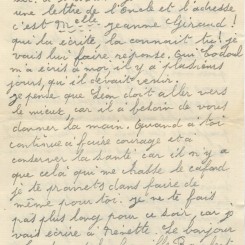 une lettre de d'Oncle et l'adresse
c'est Melle Jeanne Giraud !
qui l'a écrite, la connait tu ? je
vais lui faire réponse.
m'a écrit à moi, il y a quelques
jours, qu'il devait venir.
je pense que Léon doit aller vers
le mieux, car il a besoin de vous
donner la main. Quand à toi
continue à faire courage et à
conserver la santé car il n'y a
que cela qui me chasse le cafard
je te promets d'en faire de
même pour toi. je ne te fais
pas plus long pour ce soir, car je
vais écrire à Nenette. Le bonjour